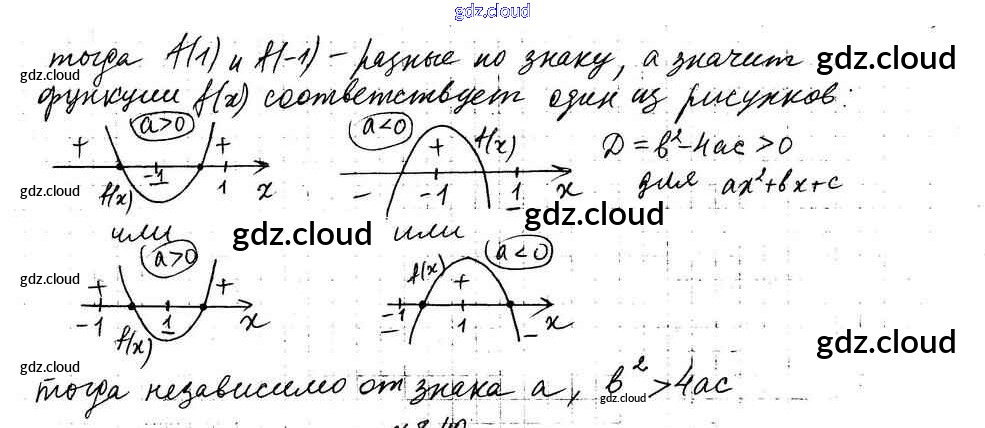 gdz.cloud
тогда f(1) и f(-1) - разные по знаку, а значит gdz.cloud
gdz.cloud
функции f(x) соответствует один из рисунков:
a>0 a<0
+ + + f(x) D = b²-4ac >0
f(x) -1 1 x - -1 1 - x для ax²+bx+c
gdz.cloud gdz.cloud
или gdz.cloud или
a>0 f(x) a<0
gdz.cloud + + +
-1 f(x) 1 x -1 - 1 - x
gdz.cloud
gdz.cloud
Тогда независимо от знака a, b² >4ac
gdz.cloud